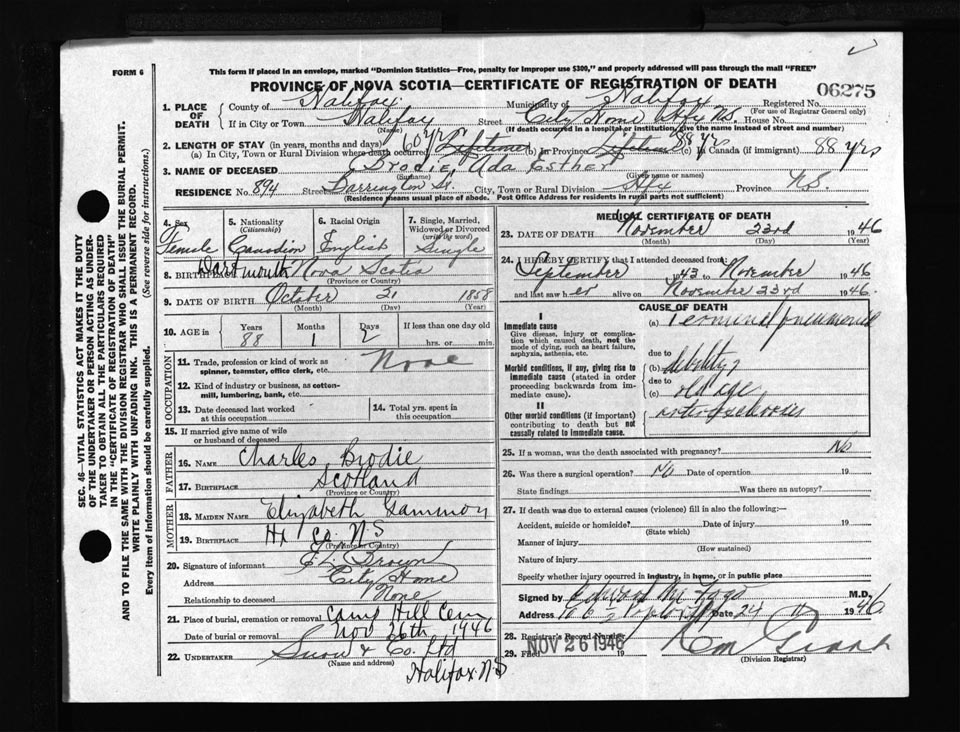 FORM 6
This form if placed in an envelope, marked "Dominion Statistics—Free, penalty for improper use $300," and properly addressed will pass through the mail "FREE"
PROVINCE OF NOVA SCOTIA—CERTIFICATE OF REGISTRATION OF DEATH
06275
1. PLACE OF DEATH County of Halifax Municipality of Halifax Registered No.
(For use of Registrar General only)
If in City or Town Halifax Street City Home Hfx N.S. House No.
(Name) (If death occurred in a hospital or institution, give the name instead of street and number)
2. LENGTH OF STAY (in years, months and days)
(a) In City, Town or Rural Division where death occurred 60 yrs (b) In Province 88 yrs (c) In Canada (if immigrant) 88 yrs
3. NAME OF DECEASED Brodie, Ada Esther
(Surname) (Given name or names)
RESIDENCE No. 894 Street Barrington St. City, Town or Rural Division Hfx Province N.S.
(Residence means usual place of abode. Post Office Address for residents in rural parts not sufficient)
4. Sex Female
5. Nationality (Citizenship) Canadian
6. Racial Origin English
7. Single, Married, Widowed or Divorced (write the word) Single
8. BIRTHPLACE Dartmouth Nova Scotia
(Province or Country)
9. DATE OF BIRTH October 21 1858
(Month) (Day) (Year)
10. AGE in Years 88 Months 1 Days 2 If less than one day old hrs. or min.
OCCUPATION
11. Trade, profession or kind of work as spinner, teamster, office clerk, etc. None
12. Kind of industry or business, as cotton-mill, lumbering, bank, etc.
13. Date deceased last worked at this occupation
14. Total yrs. spent in this occupation
15. If married give name of wife or husband of deceased
FATHER
16. NAME Charles Brodie
17. BIRTHPLACE Scotland
(Province or Country)
MOTHER
18. MAIDEN NAME Elizabeth
19. BIRTHPLACE Hx Co. N.S
(Province or Country)
20. Signature of informant Brown
Address City Home
Relationship to deceased None
21. Place of burial, cremation or removal Camp Hill Cem
Date of burial or removal Nov 26th, 1946
22. UNDERTAKER Snow & Co. Ltd
(Name and address)
Halifax N.S
MEDICAL CERTIFICATE OF DEATH
23. DATE OF DEATH November 23rd 1946
(Month) (Day) (Year)
24. I HEREBY CERTIFY that I attended deceased from:
September 1943 to November 1946
and last saw her alive on November 23rd 1946.
CAUSE OF DEATH
I
Immediate cause
Give disease, injury or complication which caused death, not the mode of dying, such as heart failure, asphyxia, asthenia, etc.
(a) Terminal pneumonia
due to
Morbid conditions, if any, giving rise to immediate cause (stated in order proceeding backwards from immediate cause).
(b) debility
due to
(c) old age
II
Other morbid conditions (if important) contributing to death but not causally related to immediate cause.
25. If a woman, was the death associated with pregnancy? No
26. Was there a surgical operation? No Date of operation 19
State findings Was there an autopsy?
27. If death was due to external causes (violence) fill in also the following:—
Accident, suicide or homicide? Date of injury 19
(State which)
Manner of injury
(How sustained)
Nature of injury
Specify whether injury occurred in industry, in home, or in public place
Signed by M.D.
Address Date 24 11 1946
28. Registrar's Record Number
29. Filed NOV 26 1946 19
(Division Registrar)
SEC. 46—VITAL STATISTICS ACT MAKES IT THE DUTY
OF THE UNDERTAKER OR PERSON ACTING AS UNDER-
TAKER TO OBTAIN ALL THE PARTICULARS REQUIRED
IN THE "CERTIFICATE OF REGISTRATION OF DEATH"
AND TO FILE THE SAME WITH THE DIVISION REGISTRAR WHO SHALL ISSUE THE BURIAL PERMIT.
WRITE PLAINLY WITH UNFADING INK. THIS IS A PERMANENT RECORD.
Every item of information should be carefully supplied. (See reverse side for instructions.)